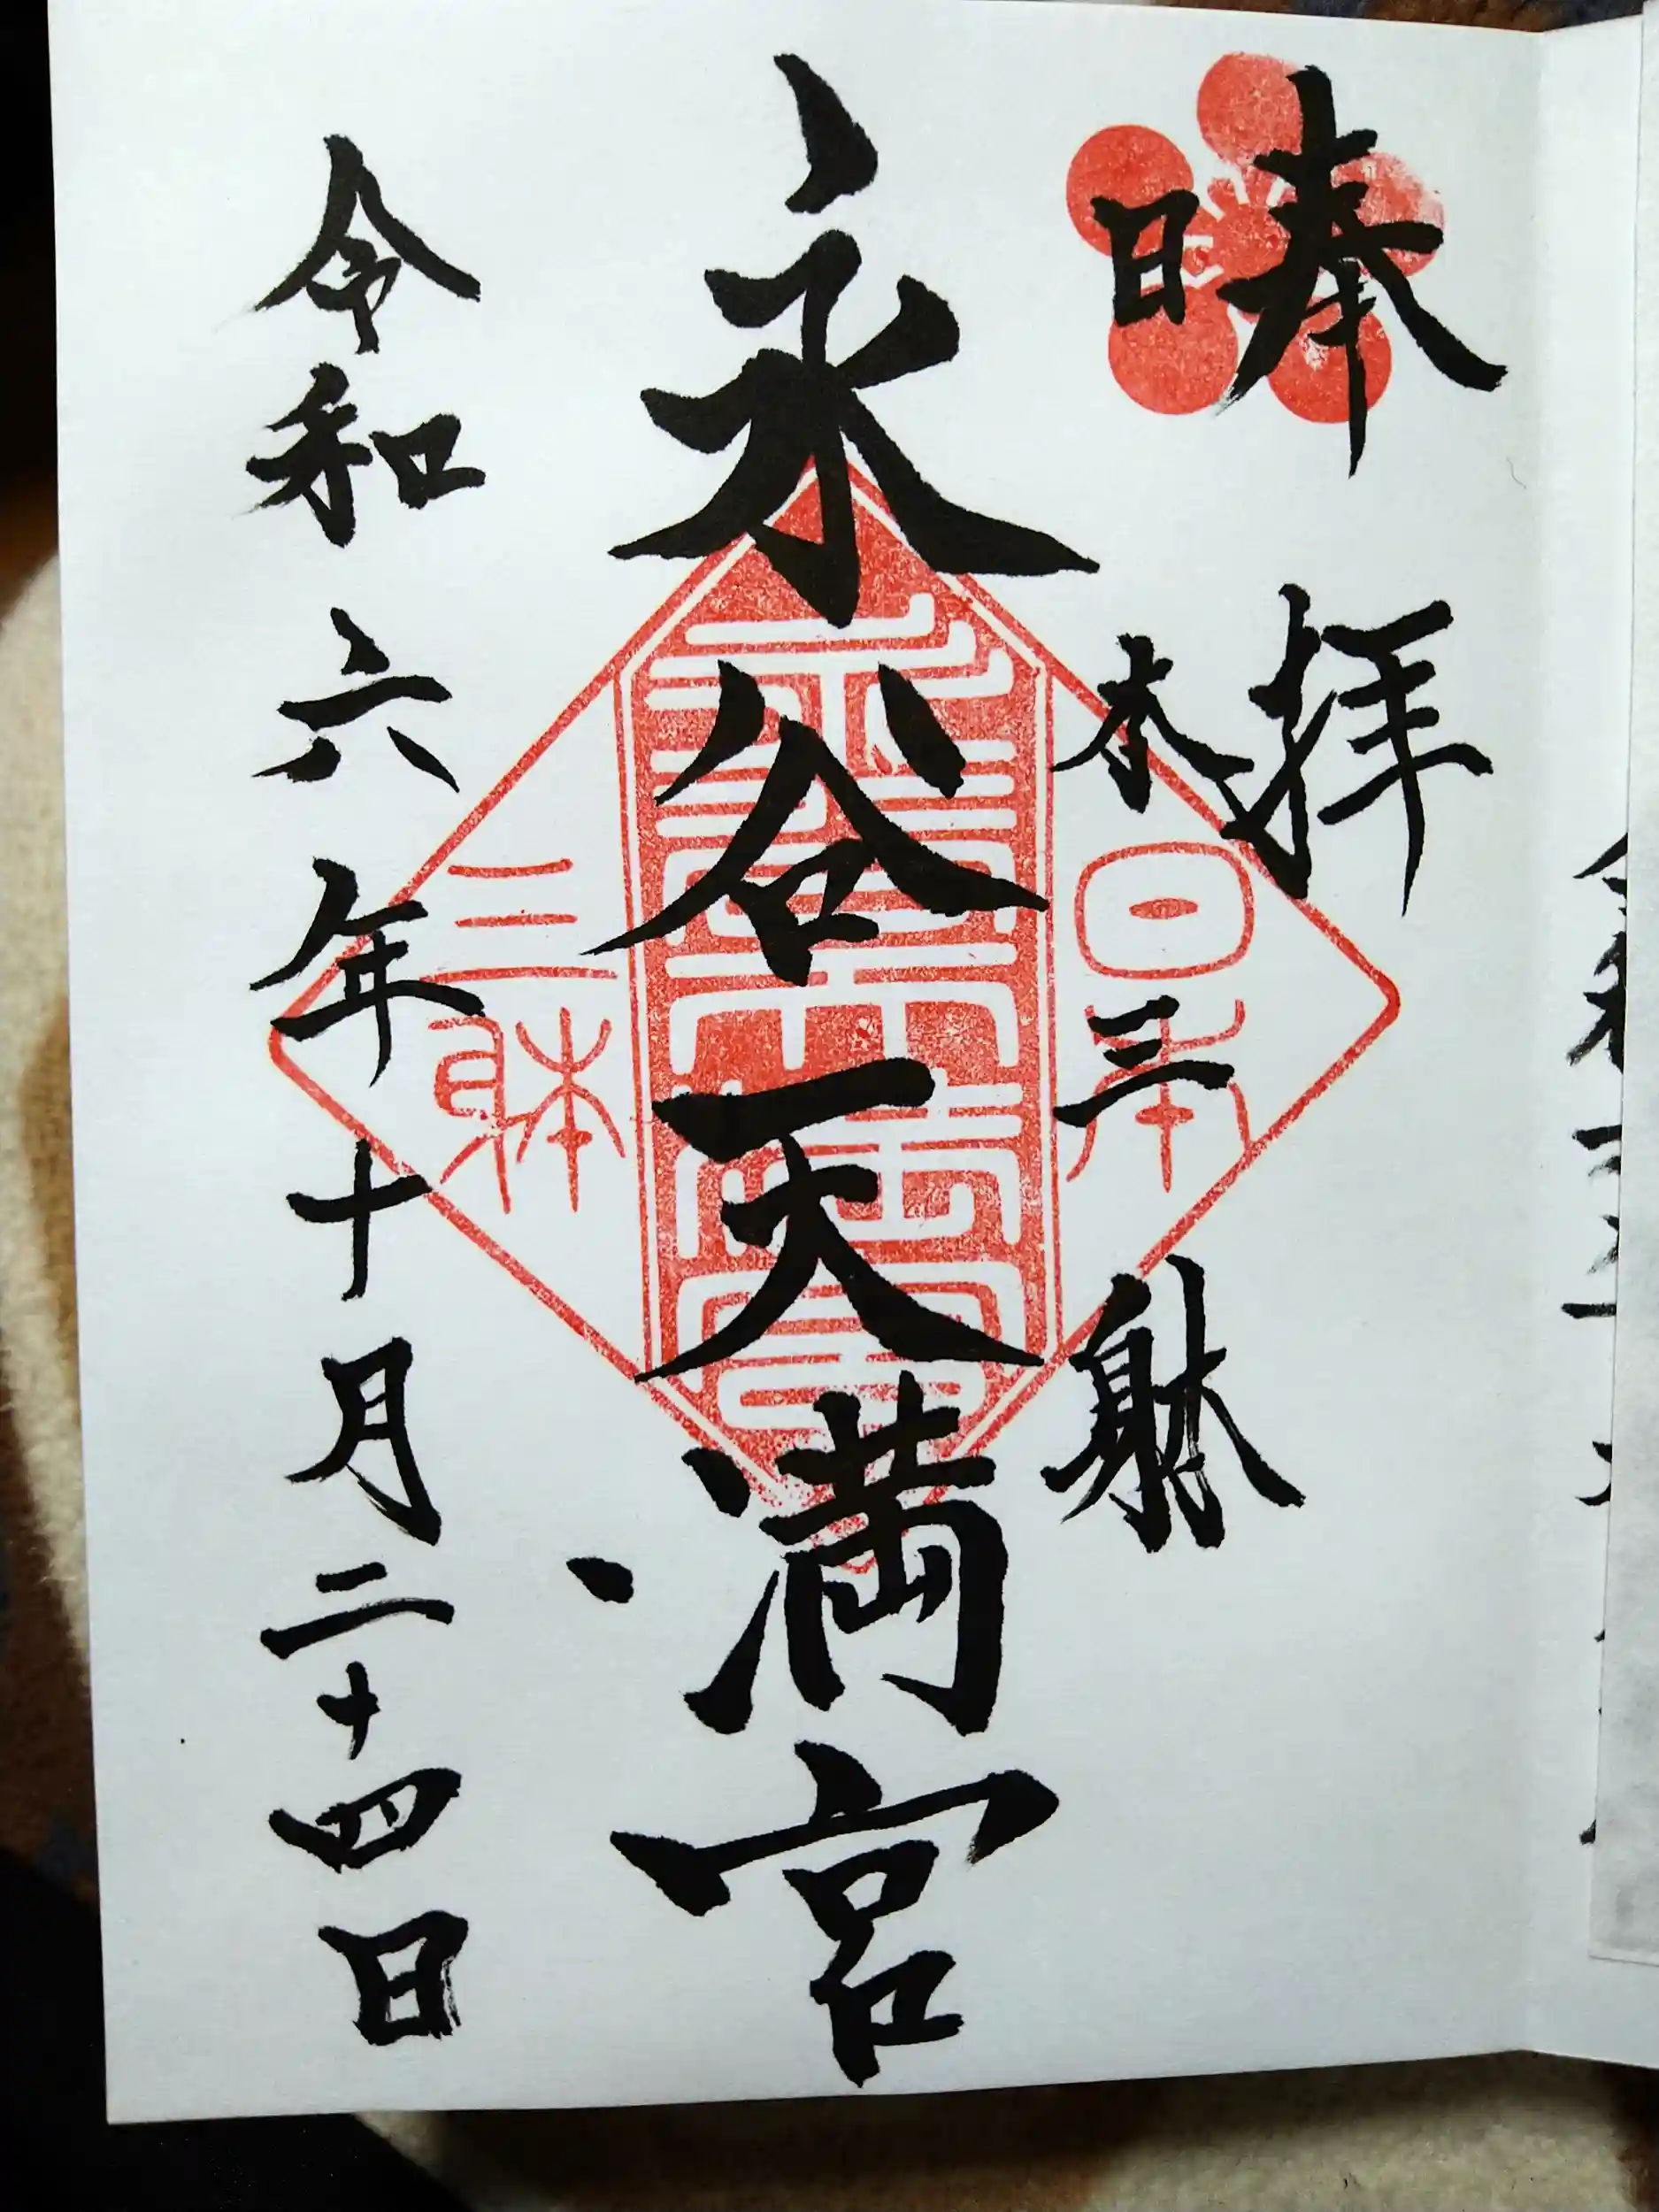 奉拝
日本三躰
永谷天満宮
令和六年十月二十四日
日本
三躰